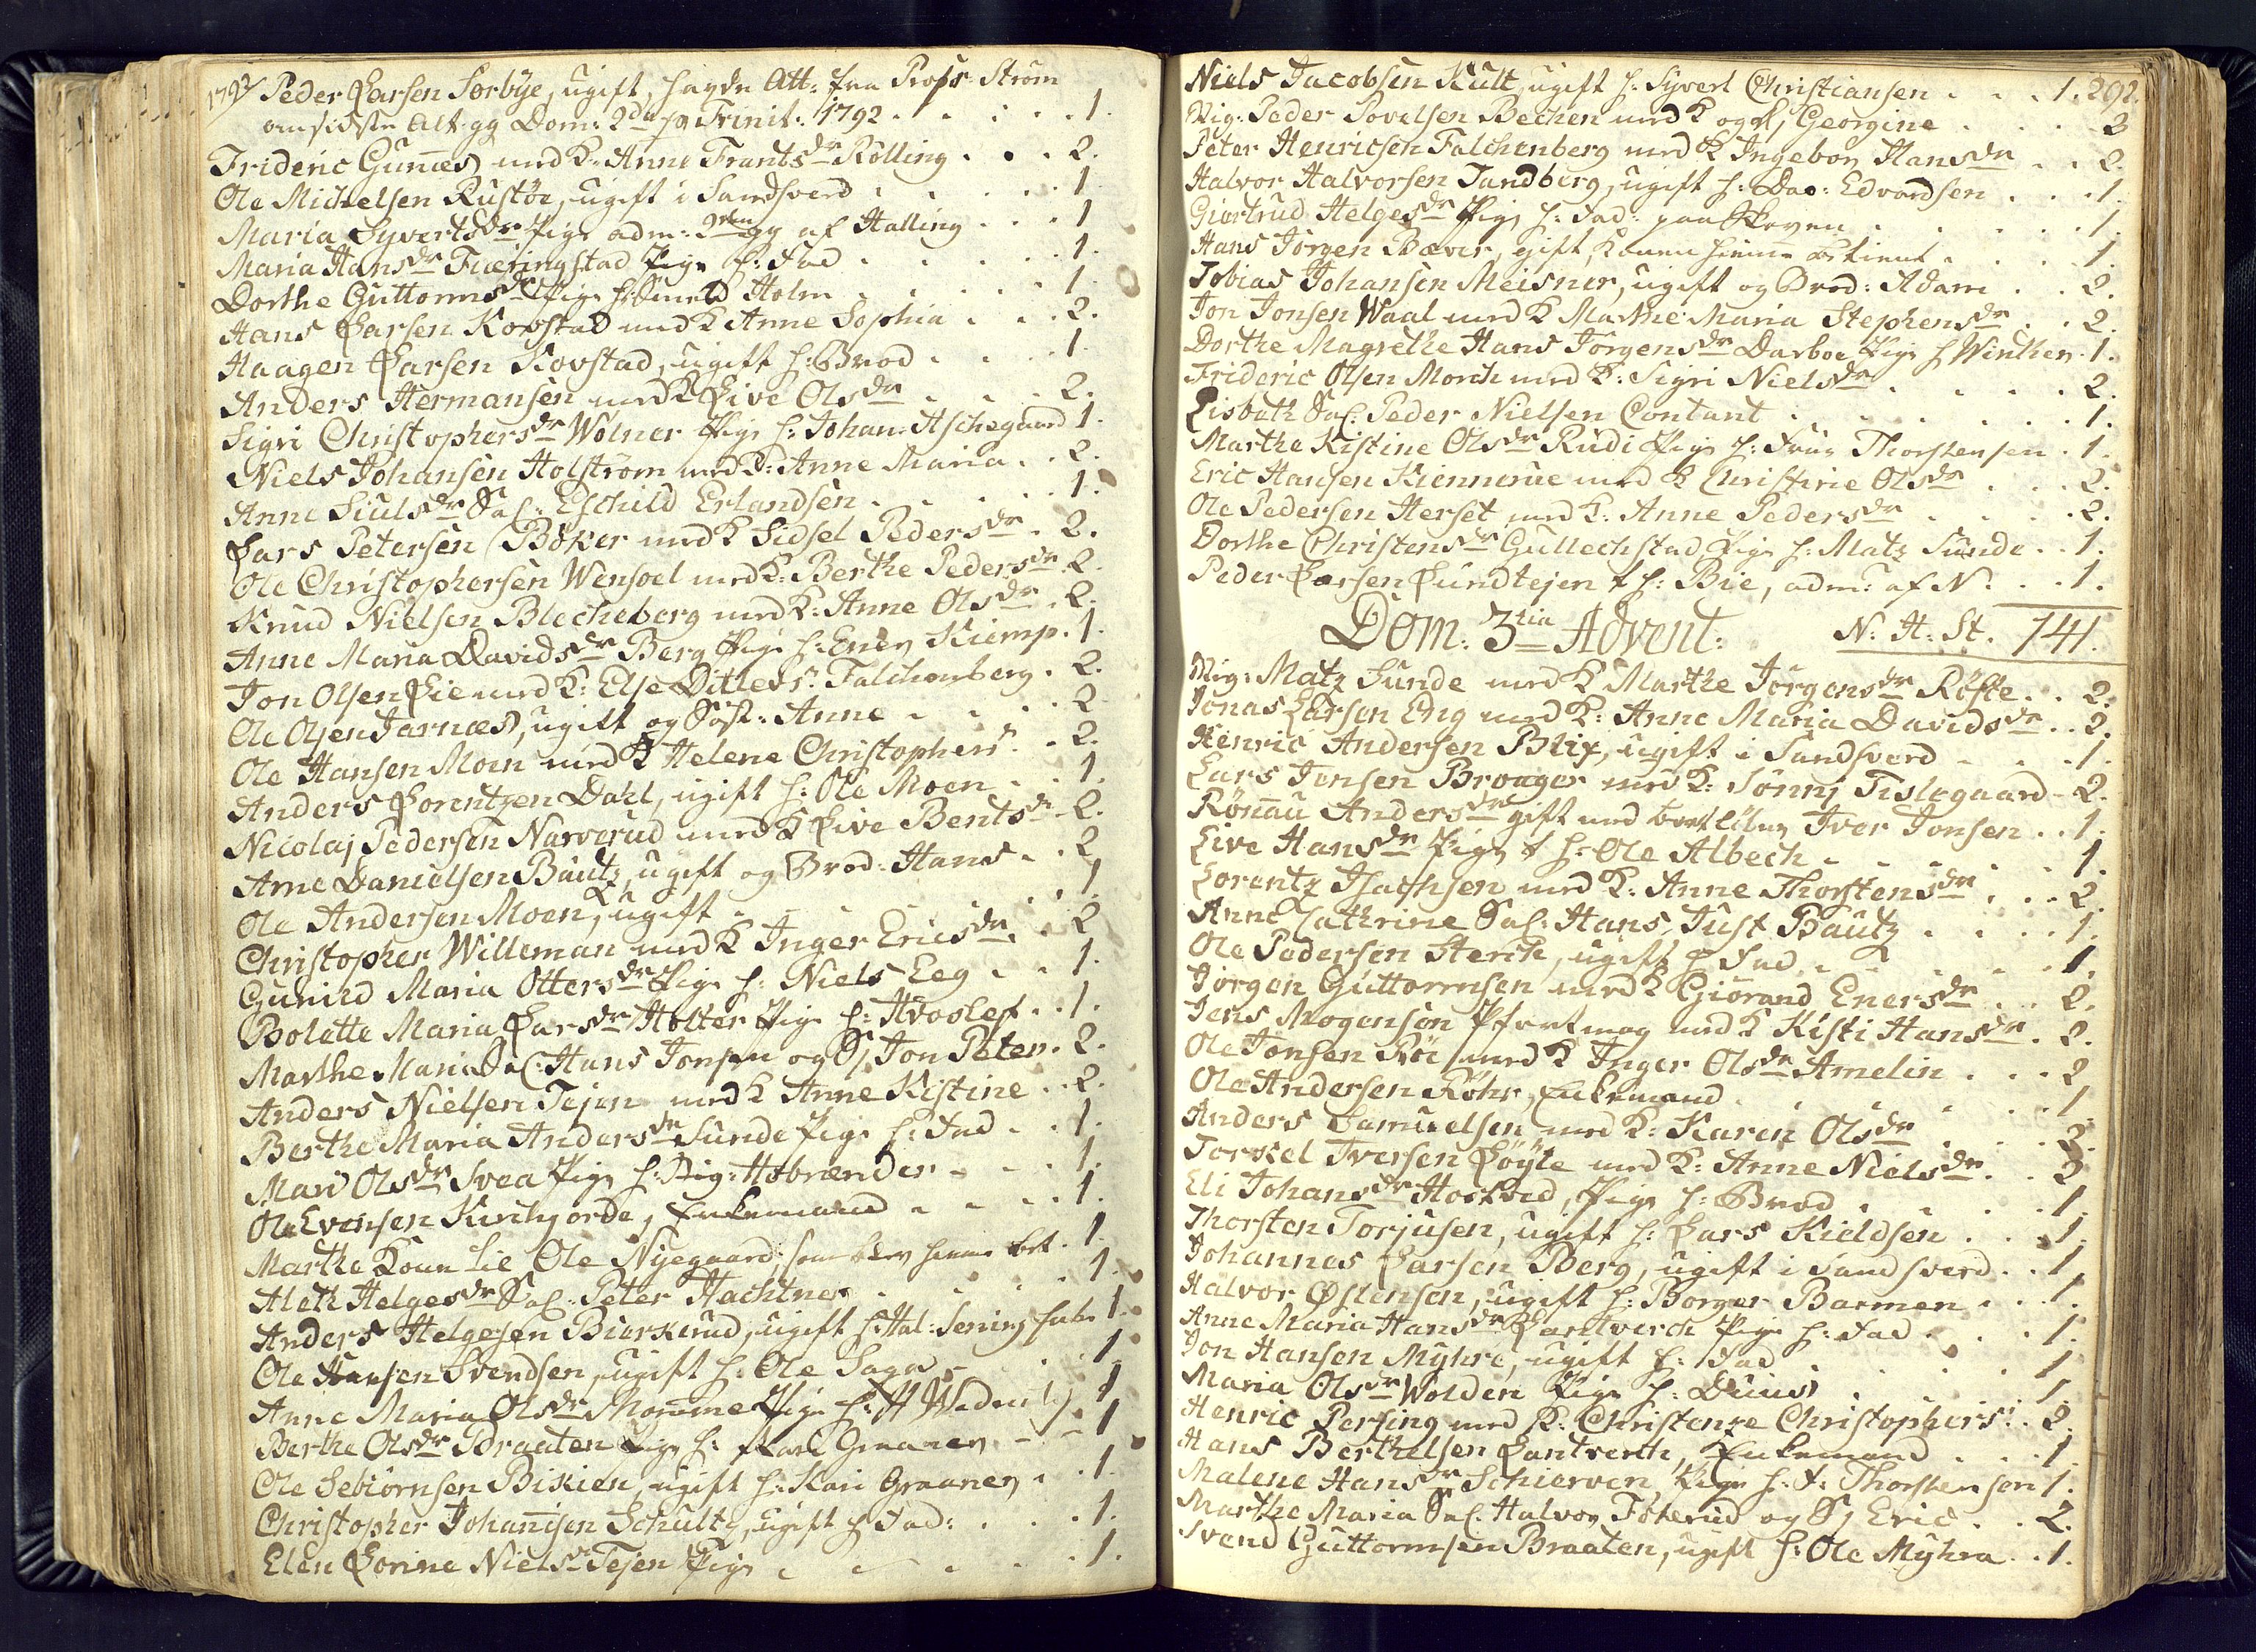 1792/ Peder Larsen Sørbÿe, ugift, havde Att: fra Profs Strøm
om sidste Alt:gg Dom: 2da p Trinit: 1792 . . . . 1.
Frideric Gunnes med K: Anne Frants dr Rolling . . . 2.
Ole Michelsen Rustøe, ugift i Sandsverd . . . 1.
Maria Syverts dr Pige adm: 2den gg af Halling . . . 1
Maria Hans dr Fværingstad Pige h: Fad . . . 1.
Dorthe Guttorms dr Pige h: Holm . . . 1
Hans Larsen Kovstad med K Anne Sophia . . . 2.
Haagen Larsen Kovstad, ugift h: Brod . . . 1.
Anders Hermansen med K Live Ols dr . . . 2.
Sigri Christophers dr Wølner Pige h: Johan Aschegaard 1.
Niels Johansen Holstrøm med K: Anne Maria . . 2.
Anne Siuls dr Sal: Eschild Erlandsen . . . 1.
Lars Petersen Bøker med K Sidsel Peders dr . 2.
Ole Christophersen Wensoel med K: Berthe Peders dr 2.
Knud Nielsen Blecheberg med K: Anne Ols dr . 2.
Anne Maria Davids dr Berg Pige h: Enev Kiemp . 1.
Jon Olsen Lie med K: Else Ditlevs: Falchenberg . 2.
Ole Olsen Jarnæs, ugift og Søst: Anne . . . 2
Ole Hansen Moen med K Helene Christophers . . 2.
Anders Lorentzen Dahl, ugift h: Ole Moen . . 1.
Nicolaj Pedersen Narverud med K Live Bents dr . 2.
Arne Danielsen Bautz, ugift og Brod: Hans . . 2
Ole Andersen Moen, ugift . . . 1.
Christopher Willeman med K Inger Erics dr . . 2
Gunild Maria Otters dr Pige h: Niels Eeg . . 1.
Bolette Maria Lars dr Holter Pige h: Hvoslef . . 1.
Marthe Maria Sal: Hans Jonsen og S: Jon Peter . 2.
Anders Nielsen Tejen med K Anne Kistine . . 2.
Berthe Maria Anders dr Sunde Pige h: Fad . . 1.
Mari Ols dr Svea Pige h: Stig: Hobrænder . . . 1.
Ole Evensen Kirchjorde, Enkemand . . . 1.
Marthe Koun Lie Ole Nÿegaard, som blev hiemme . 1.
Aleth Helges dr Sal: Peter Hachtner . . . 1.
Anders Helgesen Bierkerud, ugift h: Hal: 1.
Ole Hansen Svendsen, ugift h: Ole Saga . . . 1.
Anne Maria Ols dr Momme Pige h: 1
Berthe Ols dr Braaten Pige h: Kari Graanen . . 1
Ole Sebiørnsen Bikien, ugift h: Kari Graanen . . 1.
Christopher Johannisen Schultz, ugift h Fad: . . . 1.
Elen Lorine Niels dr Tejen Pige . . . . 1.
Niels Jacobsen Kult, ugift h: Syvert Christiansen . . . 1. 292.
Stig: Peder Povelsen Bechen med K og S: Georgine . . . 3
Peter Henricsen Falchenberg med K Ingebor Hans dr . . 2.
Halvor Halvorsen Sandberg, ugift h: Dav: Edvardsen . . . 1.
Giertrud Helges dr Pige h: Fad: paa Skoven . . . 1.
Hans Jørgen Bæver, gift, Konen hiemme betient . . . 1
Tobias Johansen Meisner, ugift og Brod: Adam . . 2.
Jon Jonsen Waal med K Marthe Maria Stephens dr . . 2.
Dorthe Magrethe Hans Jørgens dr Darboe Pige h Winther . 1.
Frideric Olsen Morch med K: Sigri Niels dr . . . 2.
Lisbeth Sal: Peder Nielsen Contant . . . 1.
Marthe Kistine Ols dr Rudi Pige h: Frue Thorstensen . 1.
Eric Hansen Kiennerue med K Christine Ols dr . . . 2.
Ole Pedersen Herset med K: Anne Peders dr . . . 2.
Dorthe Christens dr Gullechstad Pige h: Matz Sunde . . 1.
Peder Larsen Lundtejen h: Bie, adm: af N: . . 1.
Dom: 3tia Advent: N: A: St. 141.
Stig: Matz Sunde med K Marthe Jørgens dr Røste . . 2.
Jonas Larsen Eng med K: Anne Maria Davids dr . . 2.
Henric Andersen Blix, ugift i Sandsverd . . . 1.
Lars Jensen Broager med K: Sønnj Tislegaard . 2.
Rønnau Anders dr gift med Iver Jonsen . . 1.
Live Hans dr Pige h: Ole Albech . . . 1.
Lorentz Isachsen med K: Anne Thorstens dr . . . 2.
Anne Cathrine Sal: Hans Just Bautz . . . 1.
Ole Pedersen Sterch, ugift h Fad . . . 1.
Jørgen Guttormsen med K Giørand Eners dr . . 2.
Jens Mogensen med K Kisti Hans dr . 2.
Ole Jonsen Röe med K Inger Ols dr Amelin . . . 2
Ole Andersen Røhr, Enkemand . . . 1
Anders Samuelsen med K: Karen Ols dr . . . 2.
Torkel Iversen Løÿte med K: Anne Niels dr . . 2
Eli Johans dr Pige h: Brod . . . 1.
Thorsten Torjusen, ugift h: Lars Kieldsen . . . 1.
Johannes Larsen Berg, ugift i Sandsverd . . 1
Halvor Østensen, ugift h: Borger Barmen . . . 1.
Anne Maria Hans dr Lantverch Pige h: Fad . . . 1.
Jon Hansen Mÿhre, ugift h: Fad . . . 1
Maria Ols dr Wolden Pige h: Duus . . . 1.
Henric Persing med K: Christenze Christophers: . 2.
Hans Berthelsen Lantverch, Enkemand . . . 1
Malene Hans dr Schierven Pige h: F: Thorstensen 1.
Marthe Maria Sal: Halvor Foterud og S: Eric . . 2.
Svend Guttormsen Braaten, ugift h: Ole Mÿhra . . 1.